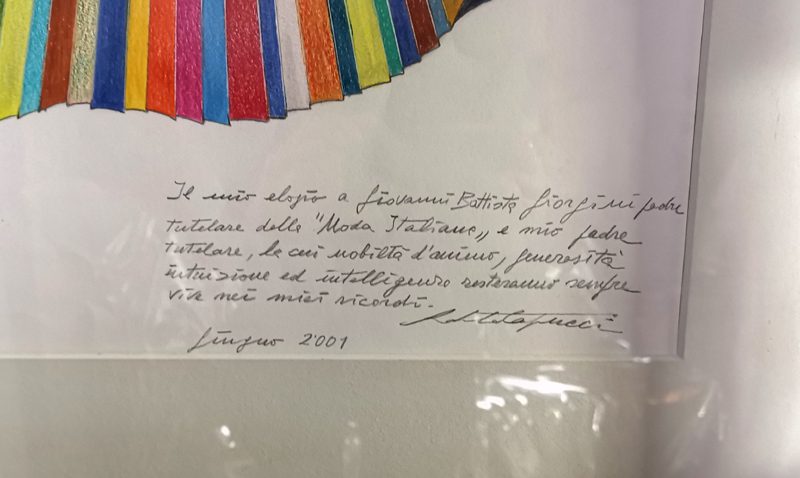 Il mio elogio a Giovanni Battista Giorgini padre
tutelare della "Moda Italiana„ e mio padre
tutelare, la cui nobiltà d'animo, generosità
intuizione ed intelligenza resteranno sempre
vive nei miei ricordi.
Roberto Capucci
Giugno 2001